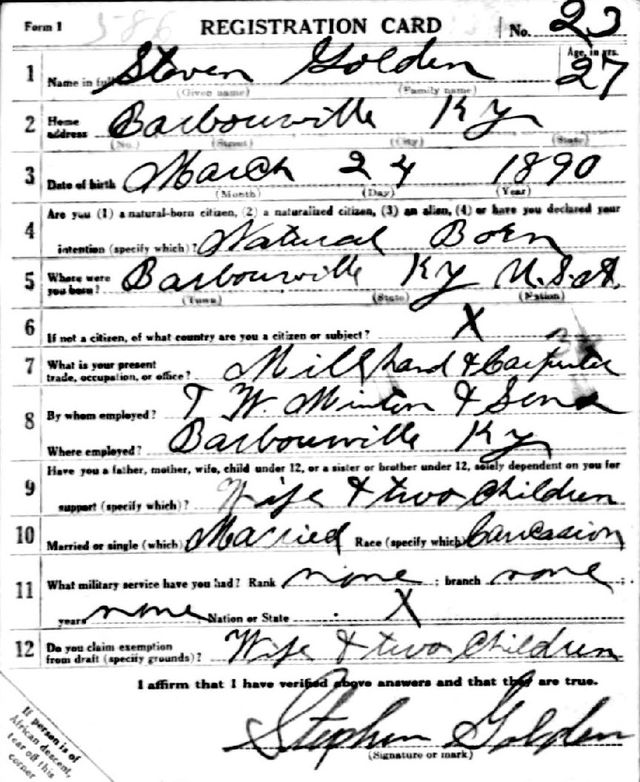 Form 1 586 REGISTRATION CARD No. 23
1 Name in full Steven Golden Age, in yrs. 27
(Given name) (Family name)
2 Home address Barbourville Ky
(No.) (Street) (City) (State)
3 Date of birth March 24 1890
(Month) (Day) (Year)
Are you (1) a natural-born citizen, (2) a naturalized citizen, (3) an alien, (4) or have you declared your
4 intention (specify which)? Natural Born
5 Where were you born? Barbourville Ky U.S.A.
(Town) (State) (Nation)
6 If not a citizen, of what country are you a citizen or subject? X
7 What is your present trade, occupation, or office? Mill hand & Carpenter
8 By whom employed? T W. Minton & Sons
Where employed? Barbourville Ky
Have you a father, mother, wife, child under 12, or a sister or brother under 12, solely dependent on you for
9 support (specify which)? Wife & two Children
10 Married or single (which) Married Race (specify which) Caucassion
11 What military service have you had? Rank none ; branch none ;
years none Nation or State X
12 Do you claim exemption from draft (specify grounds)? Wife & two Children
I affirm that I have verified above answers and that they are true.
Stephen Golden
(Signature or mark)
If person is of
African descent,
tear off this
corner